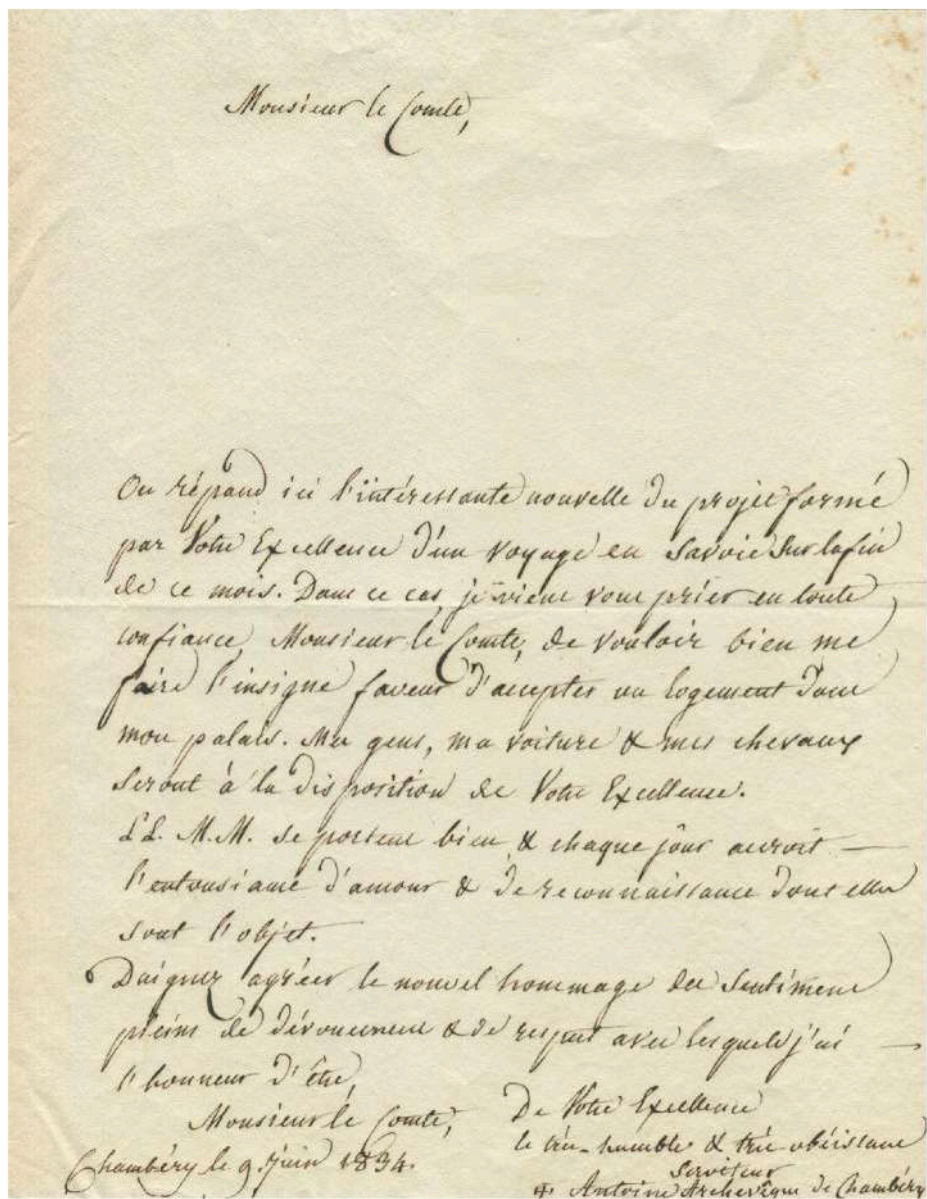 Monsieur le Comte,
On répand ici l'intéressante nouvelle du projet formé
par Votre Excellence d'un voyage en Savoie sur la fin
de ce mois. Dans ce cas, je viens vous prier en toute
confiance, Monsieur le Comte, de vouloir bien me
faire l'insigne faveur d'accepter un logement dans
mon palais. Mes gens, ma voiture & mes chevaux
seront à la disposition de Votre Excellence.
LL. M.M. se portent bien & chaque jour accroit —
l'entousiame d'amour & de reconnaissance dont elles
sont l'objet.
Daignez agréer le nouvel hommage des sentimens
pleins de dévouement & de respect avec lesquels j'ai —
l'honneur d'être,
Monsieur le Comte,
De Votre Excellence
le très-humble & très-obéissant
Serviteur
Chambéry le 9 juin 1834.
+ Antoine Archevêque de Chambéry